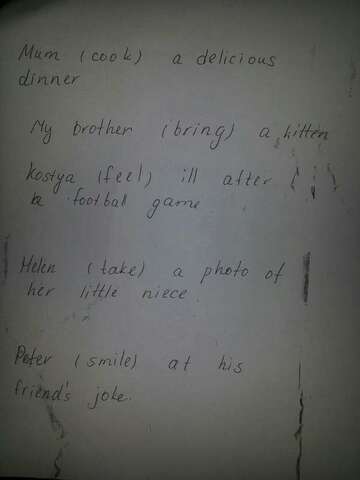 Mum (cook) a delicious
dinner
My brother (bring) a kitten
Kostya (feel) ill after
a football game
Helen (take) a photo of
her little niece.
Peter (smile) at his
friend's joke.